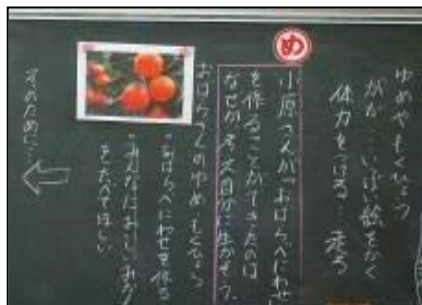 ゆめやもくひょう
がか…いっぱい絵をかく
体力をつける…走る
め
小原さんが「おばらべにわせ」
を作ることができたのは
なぜか、考え自分に生かそう。
おばらさんのゆめ もくひょう
・おばらべにわせを作る
・みんなにおいしいみかん
をたべてほしい
そのために…